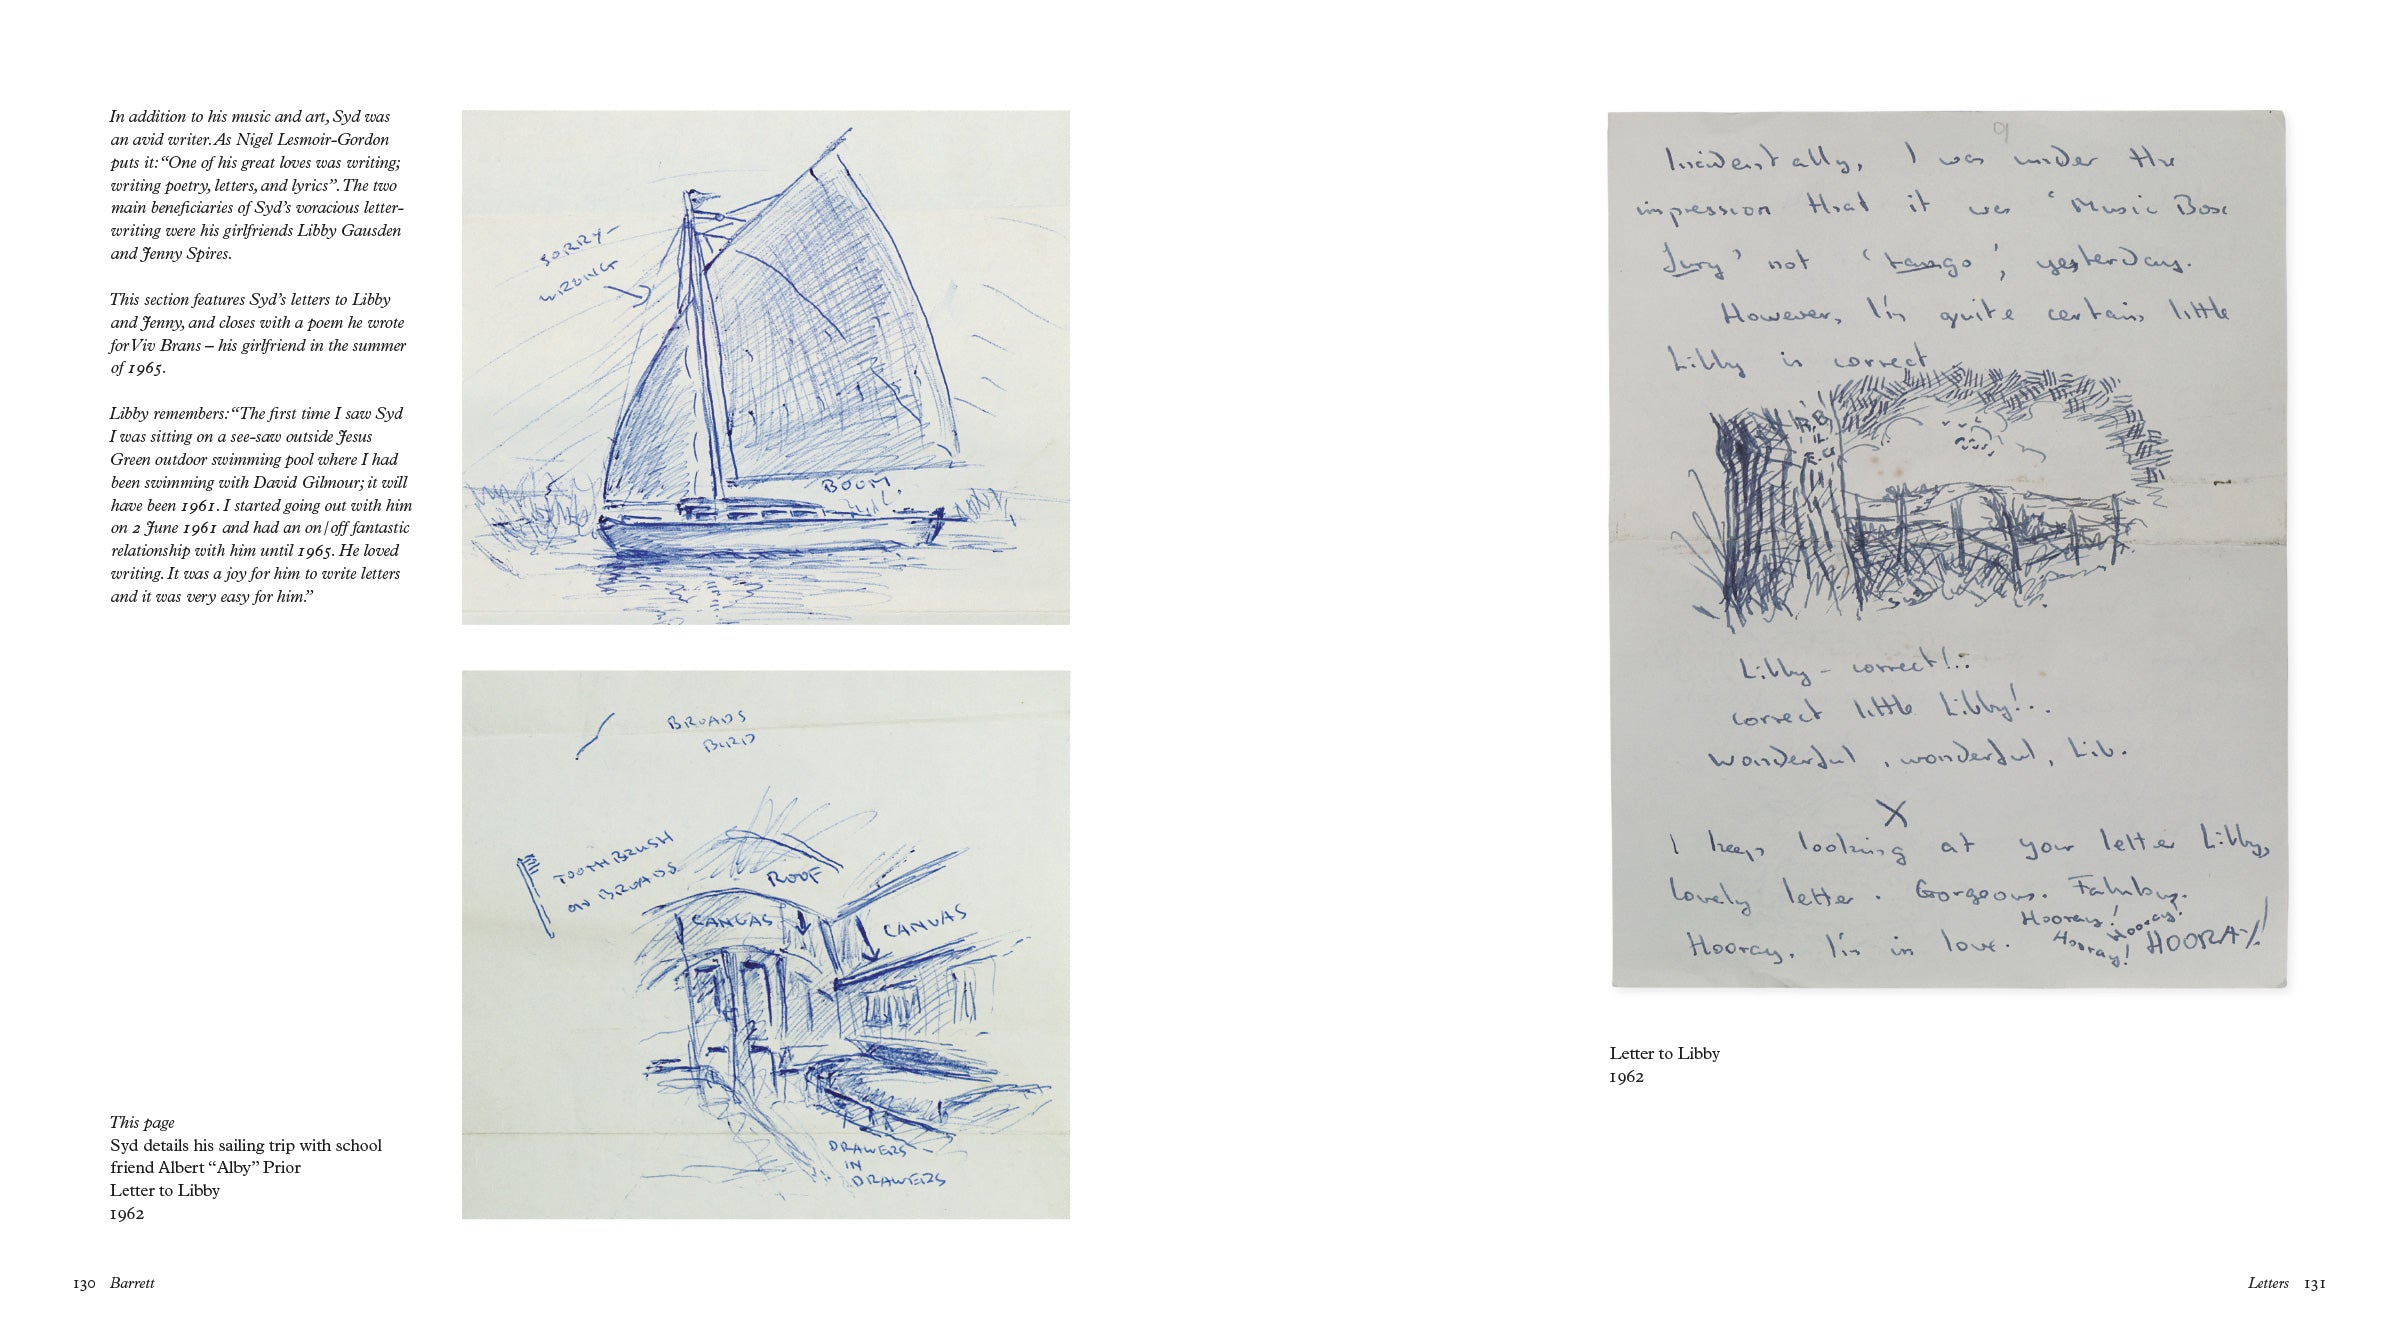 In addition to his music and art, Syd was
an avid writer. As Nigel Lesmoir-Gordon
puts it: “One of his great loves was writing;
writing poetry, letters, and lyrics”. The two
main beneficiaries of Syd’s voracious letter-
writing were his girlfriends Libby Gausden
and Jenny Spires.
This section features Syd’s letters to Libby
and Jenny, and closes with a poem he wrote
for Viv Brans – his girlfriend in the summer
of 1965.
Libby remembers: “The first time I saw Syd
I was sitting on a see-saw outside Jesus
Green outdoor swimming pool where I had
been swimming with David Gilmour; it will
have been 1961. I started going out with him
on 2 June 1961 and had an on/off fantastic
relationship with him until 1965. He loved
writing. It was a joy for him to write letters
and it was very easy for him.”
This page
Syd details his sailing trip with school
friend Albert “Alby” Prior
Letter to Libby
1962
130 Barrett
SORRY –
WRONG
BOOM
BROADS
BIRD
TOOTHBRUSH
ON BROADS
ROOF
CANVAS
CANVAS
DRAWERS –
IN
DRAWERS
Incidentally, I was under the
impression that it was ‘Music Box
Jury’ not ‘tango’, yesterday.
However, I'm quite certain little
Libby is correct
R.B
L.
Libby – correct!..
correct little Libby!..
Wonderful, wonderful, Lib.
X
I keep looking at your letter Libby,
lovely letter. Gorgeous.
Hooray, I'm in love.
Hooray! Hooray!
Hooray! HOORAY!
Letter to Libby
1962
Letters 131